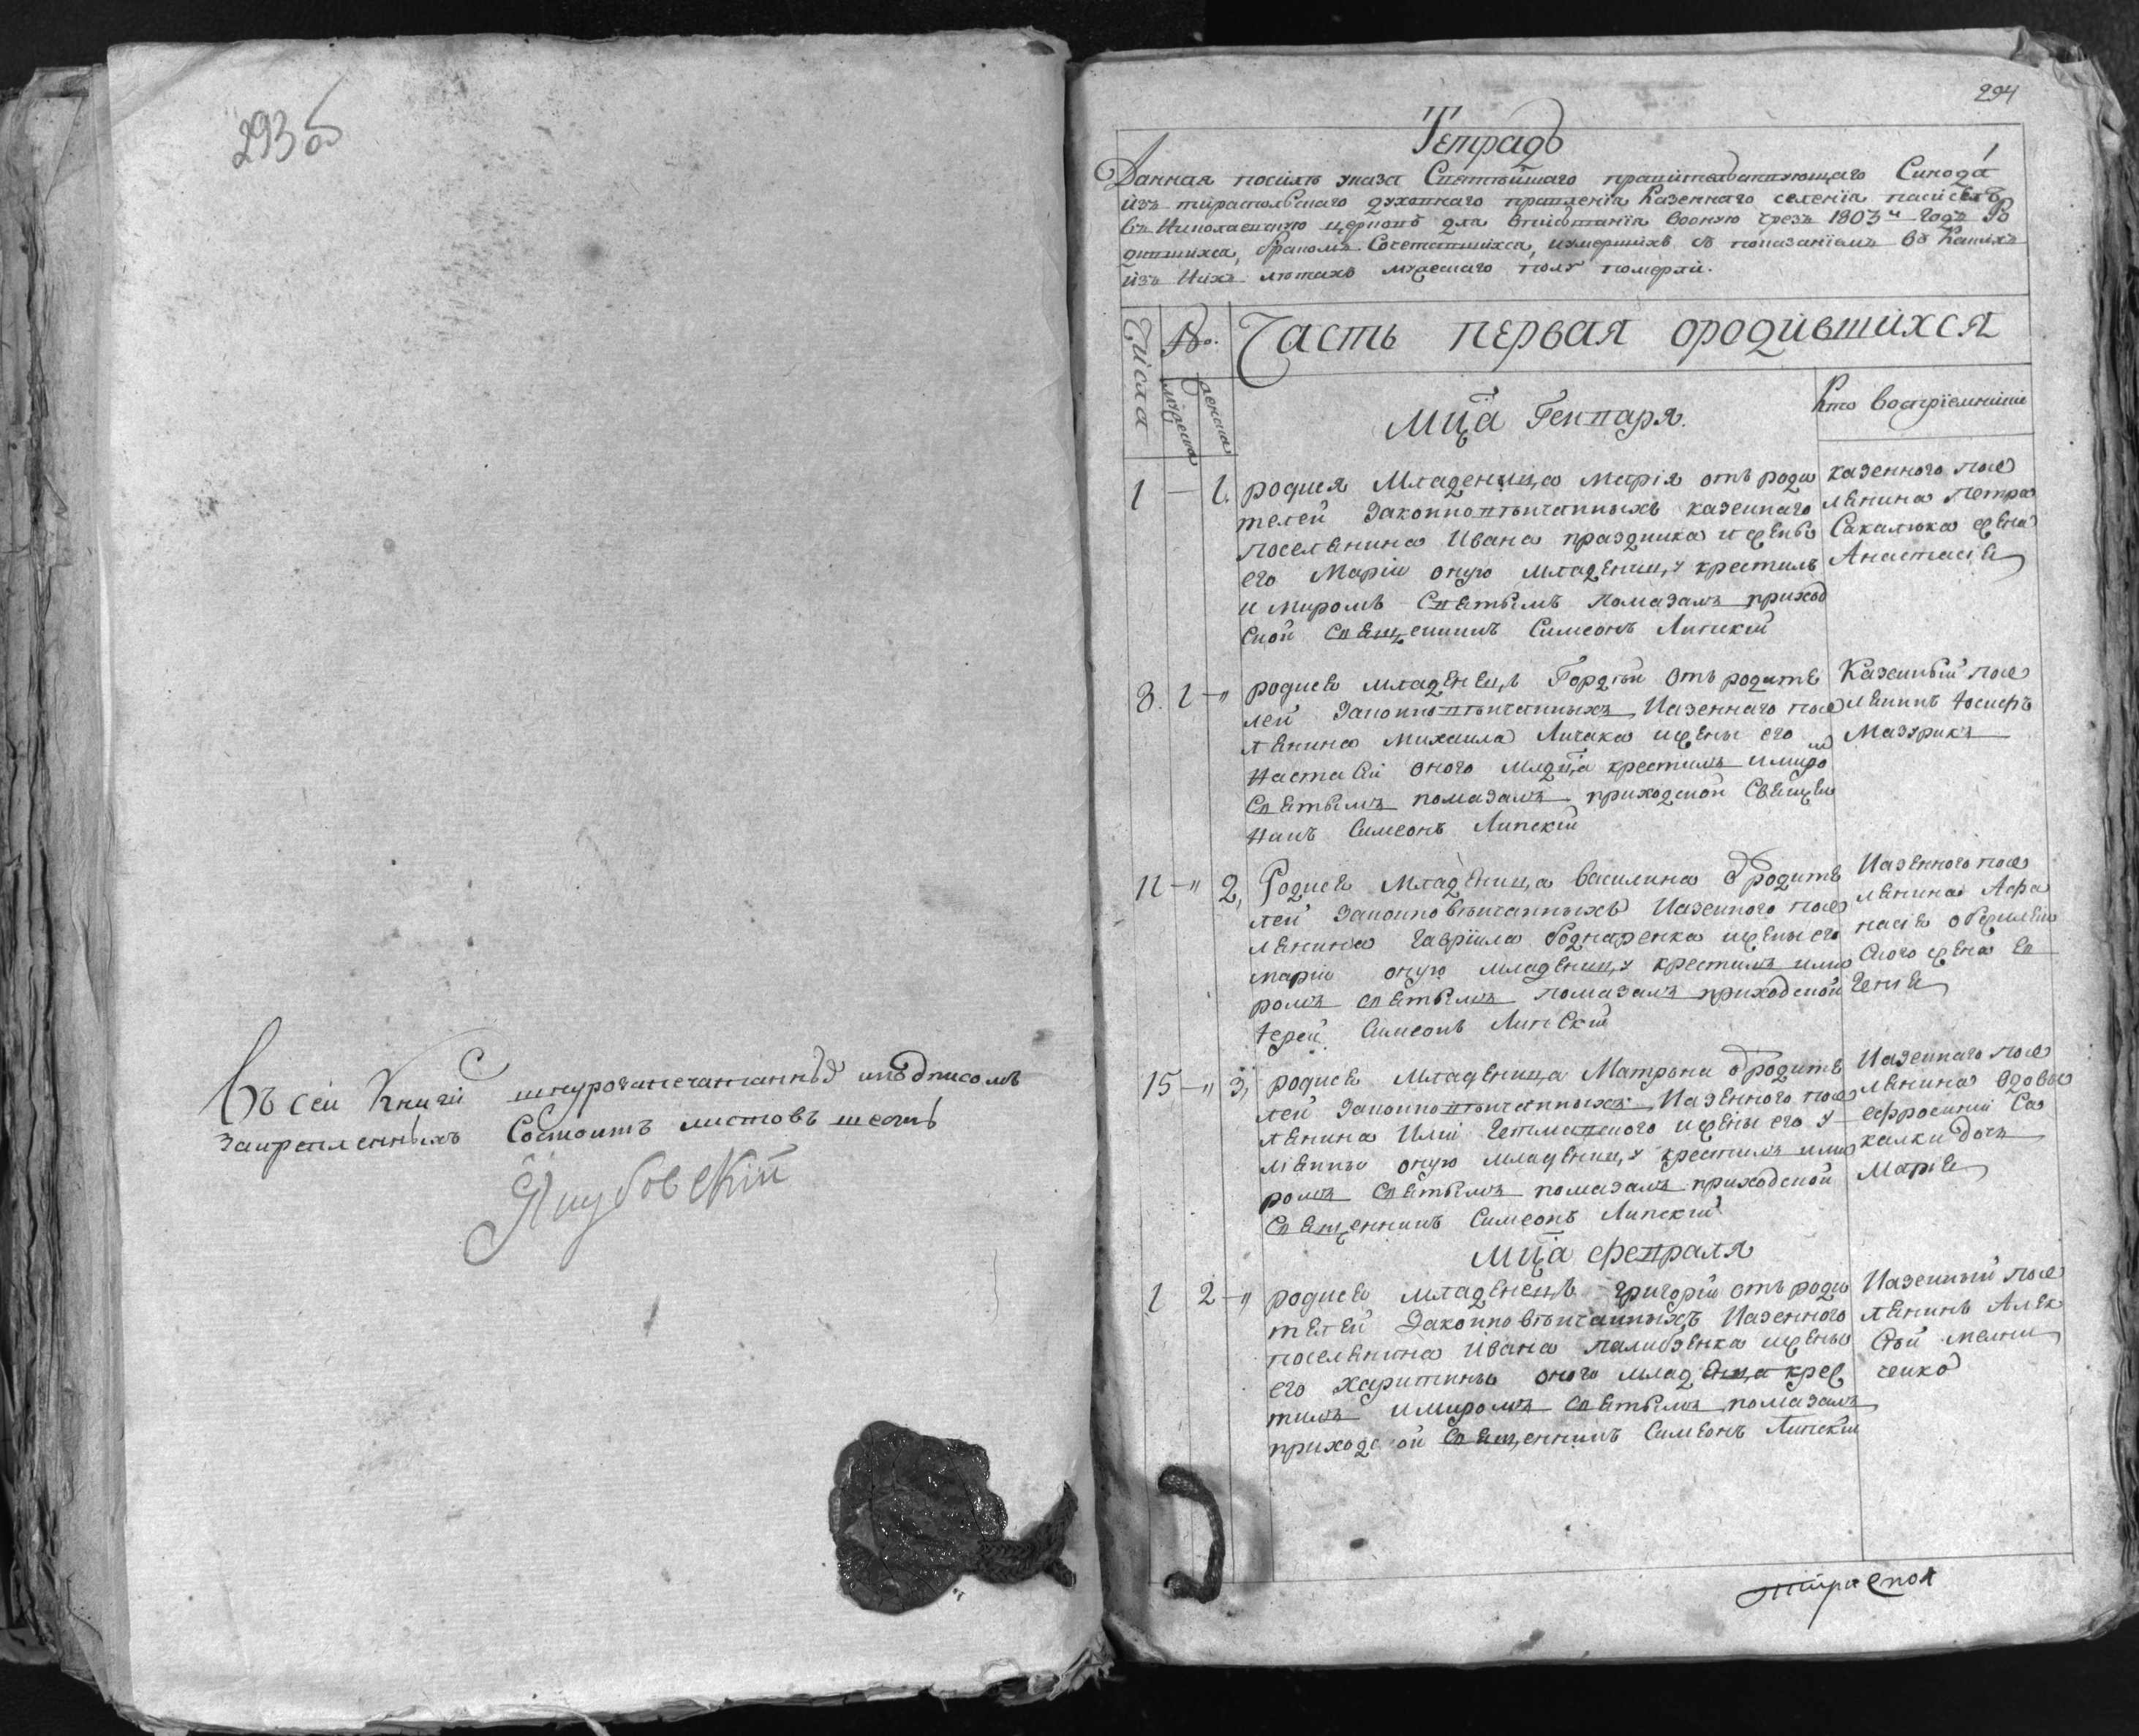 293 об
Въ сей Книги шнурозапечатанныхъ иподписомъ
закрепленныхъ Состоитъ листовъ шесть
Якубовский
294
Тетрадь
1
Данная посилѣ указа Святѣйшаго правителствующаго Синода
изъ тираспольскаго духовнаго правленїя Казеннаго селенїя
въ Николаевскую церковь для вписыванїя вооную чрезъ 1803й годъ Ро
дившихся, бракомъ Сочетавшихся, иумершихъ съ показанїемъ въ Какихъ
изъ Нихъ лѣтахъ мужескаго полу померли.
Числа
№.
мужеска
женска
Часть первая ородившихся
Мца Генваря.
Кто восприемники
1 — 1. родися Младеница Марія отъ роди
телей Законновѣнчанныхъ казеннаго
поселянина Ивана праздника и жены
его Маріи оную младеницу крестилъ
и миромъ Святымъ помазалъ приход
ской священникъ Симеонъ Липскій
казенного посе
лянина Петра
Сакалюка жена
Анастасія
8. 1 — " родися младенецъ Гордѣй отъ родите
лей Законновѣнчанныхъ Казеннаго посе
лянина михаила Личака ижены его
Настасіи оного младца крестилъ имиро
м
Святымъ помазалъ приходской Священ
никъ Симеонъ Липскій
Казенный посе
лянинъ Іосифъ
Мазурикъ
11 — " 2, Родися Младеница василина от родите
лей Законновѣнчанныхъ Казенного посе
лянина гавріила боднаренка ижены его
маріи оную младеницу крестилъ ими
ромъ святымъ помазалъ приходской
Іерей Симеонъ Липскій
Казенного посе
лянина Афа
насія
ского жена Ев
геніа
15 — " 3, родися Младеница Матрона от родите
лей Законновѣнчанныхъ Казенного посе
лянина Иліи Гетманского ижены его у
ліянны оную младеницу крестилъ ими
ромъ святымъ помазалъ приходской
Священникъ Симеонъ Липскій
Казеннаго посе
лянина вдовы
ефросиніи Са
калки дочь
Марія
Мца февраля
1 2 — " родися младенецъ григорій отъ роди
телей Законновѣнчанныхъ Казенного
поселянина Ивана палибзенка ижены
его харитины оного младенца крес
тилъ имиромъ святымъ помазалъ
приходской Священникъ Симеонъ Липскій
Казенный посе
лянинъ Алек
сѣй мелни
ченко
тираспол